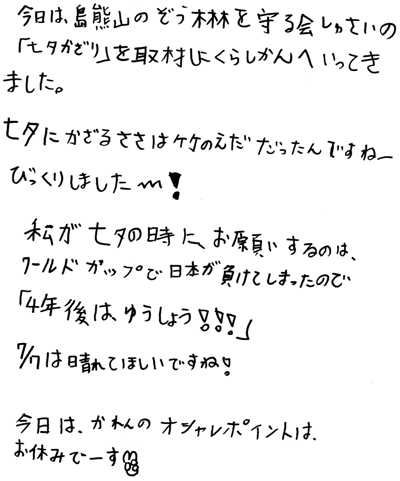 今日は、島熊山のぞう木林を守る会しゅさいの
「七夕かざり」を取材しにくらしかんへいってき
ました。
七夕にかざるささは竹のえだだったんですねー
びっくりしました〰!
私が七夕の時に、お願いするのは、
ワールドカップで日本が負けてしまったので
「4年後は、ゆうしょう!!!」
7/7は晴れてほしいですね!
今日は、かれんのオシャレポイントは、
お休みでーす